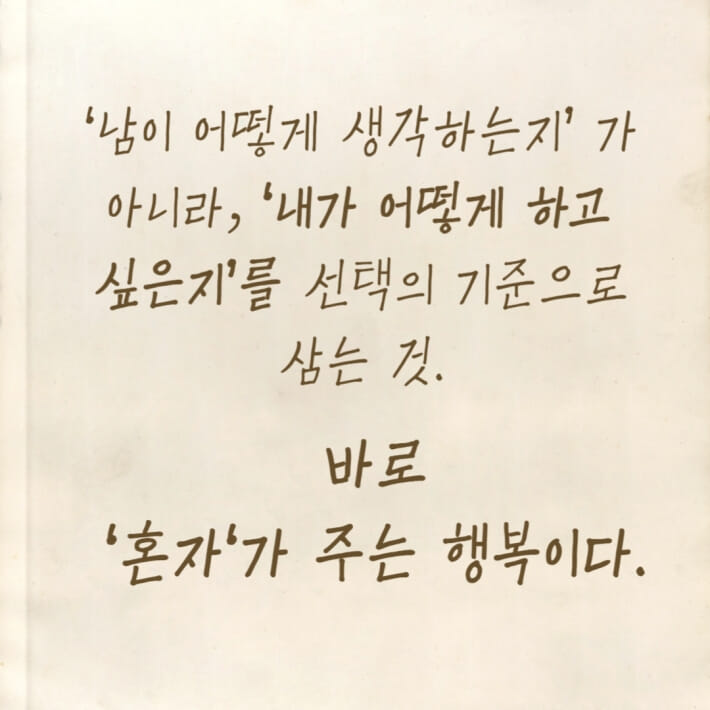 ‘남이 어떻게 생각하는지’ 가
아니라, ‘내가 어떻게 하고
싶은지’를 선택의 기준으로
삼는 것.
바로
‘혼자‘가 주는 행복이다.